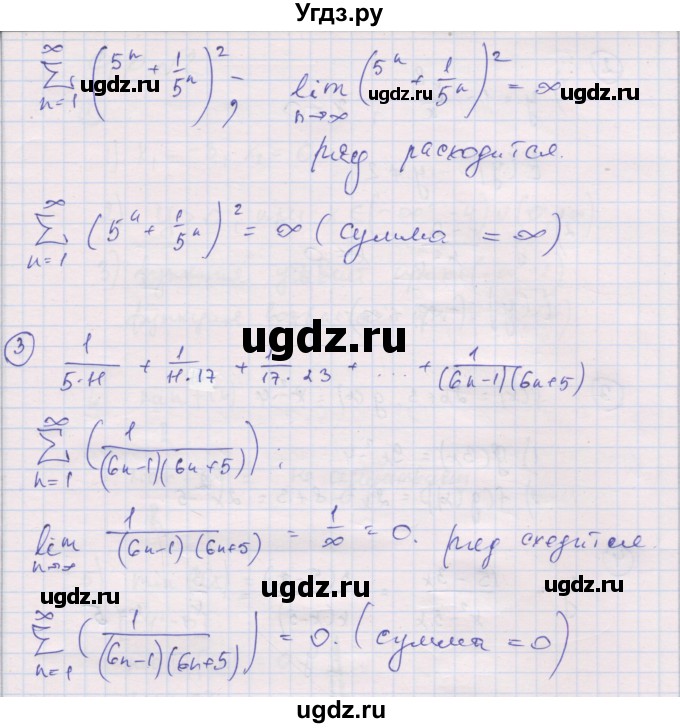 Угдз.ру
∞ ∑ n=1 (5ⁿ + 1/5ⁿ)² ; lim n→∞ (5ⁿ + 1/5ⁿ)² = ∞
ugdz.ru ugdz.ru ugdz.ru
ряд расходится.
∞ ∑ n=1 (5ⁿ + 1/5ⁿ)² = ∞ (сумма = ∞)
ugdz.ru
③ 1/5·11 + 1/11·17 + 1/17·23 + ... + 1/(6n-1)(6n+5)
∞ ∑ n=1 (1/(6n-1)(6n+5)) ;
lim n→∞ 1/(6n-1)(6n+5) = 1/∞ = 0. ряд сходится.
ugdz.ru ugdz.ru ugdz.ru
∞ ∑ n=1 (1/(6n-1)(6n+5)) = 0. (сумма = 0)
ugdz.ru